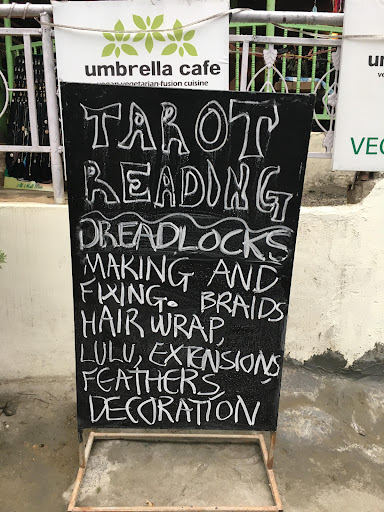 umbrella cafe
vegan·vegetarian·fusion cuisine
um
VEG
TAROT
READING
DREADLOCKS
MAKING AND
FIXING. BRAIDS
HAIR WRAP,
LULU, EXTENSIONS,
FEATHERS,
DECORATION